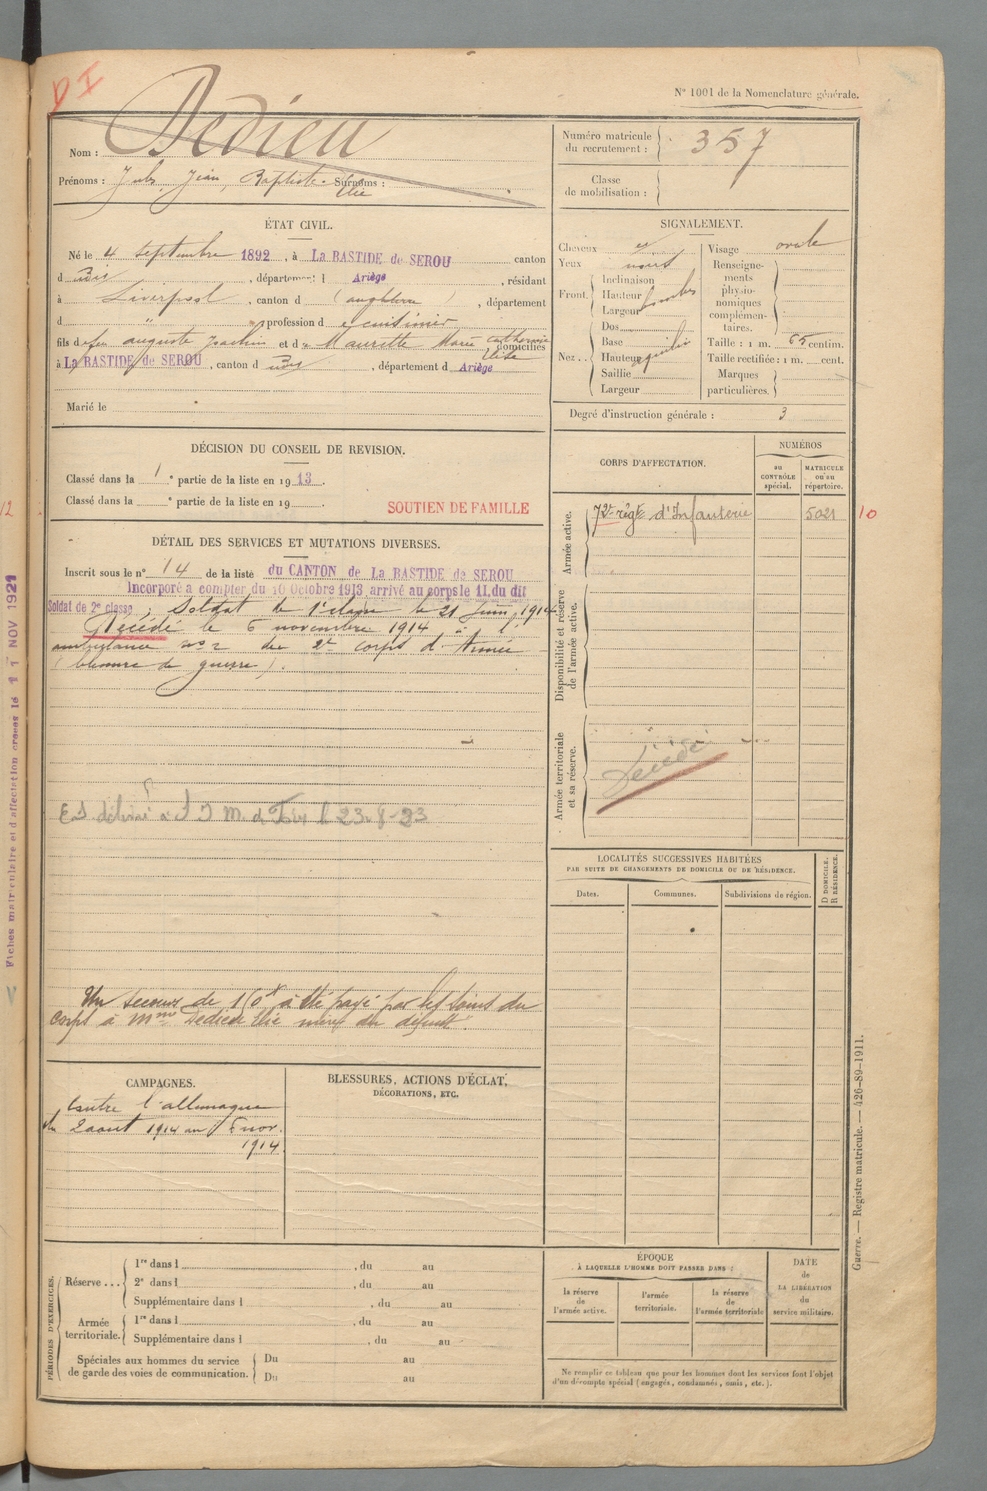 D I
N° 1001 de la Nomenclature générale.
Nom : Dedieu
Prénoms : Jules, Jean, Baptiste Surnoms : Elie
Numéro matricule du recrutement : 357
Classe de mobilisation :
ÉTAT CIVIL.
Né le 4 septembre 1892, à La BASTIDE de SEROU canton
d dudit, département d Ariège, résidant
à Liverpool, canton d (angleterre), département
d " , profession d cuisinier
fils de feu auguste Joachin et de Maurette Marie Catherine Elisa domiciliés
à La BASTIDE de SEROU, canton d dudit, département d Ariège
Marié le
SIGNALEMENT.
Cheveux
Yeux
Front. Inclinaison
Hauteur bombé
Largeur
Nez.. Dos
Base
Hauteur
Saillie
Largeur
Visage ovale
Renseignements physionomiques complémentaires.
Taille : 1 m. 65 centim.
Taille rectifiée : 1 m. cent.
Marques particulières.
Degré d'instruction générale : 3
DÉCISION DU CONSEIL DE REVISION.
Classé dans la 1e partie de la liste en 1913.
Classé dans la e partie de la liste en 19
SOUTIEN DE FAMILLE
CORPS D'AFFECTATION.
NUMÉROS
au CONTRÔLE spécial.
MATRICULE ou au répertoire.
Armée active.
72e régt d'Infanterie 5021 10
Disponibilité et réserve de l'armée active.
Armée territoriale et sa réserve.
Décédé
DÉTAIL DES SERVICES ET MUTATIONS DIVERSES.
Inscrit sous le n° 14 de la liste du CANTON de La BASTIDE de SEROU
Incorporé à compter du 10 Octobre 1913 arrivé au corps le 11 du dit
Soldat de 2e classe, Soldat de 1e classe le 21 Juin 1914
Décédé le 6 novembre 1914 à l'
ambulance n° 2 du 2e corps d'Armée
(blessure de guerre).
E.S. délivré à S I M. de Foix le 23-8-23
Un secours de 150f a été payé par les soins du
corps à Mme Dedieu Elie mère du défunt.
LOCALITÉS SUCCESSIVES HABITÉES
PAR SUITE DE CHANGEMENTS DE DOMICILE OU DE RÉSIDENCE.
Dates.
Communes.
Subdivisions de région.
D DOMICILE. R RÉSIDENCE.
CAMPAGNES.
Contre l'allemagne
du 2 aout 1914 au 6 nov.
1914.
BLESSURES, ACTIONS D'ÉCLAT,
DÉCORATIONS, ETC.
PÉRIODES D'EXERCICES.
Réserve... 1re dans l , du au
2e dans l , du au
Supplémentaire dans l , du au
Armée territoriale. 1re dans l , du au
Supplémentaire dans l , du au
Spéciales aux hommes du service de garde des voies de communication. Du au
Du au
ÉPOQUE
À LAQUELLE L'HOMME DOIT PASSER DANS :
la réserve de l'armée active.
l'armée territoriale.
la réserve de l'armée territoriale
DATE de LA LIBÉRATION du service militaire.
Ne remplir ce tableau que pour les hommes dont les services font l'objet
d'un décompte spécial (engagés, condamnés, omis, etc.).
Guerre. — Registre matricule. — 426-89-1911.
12
Fiches matriculaire et d'affectation créées le 11 NOV 1921